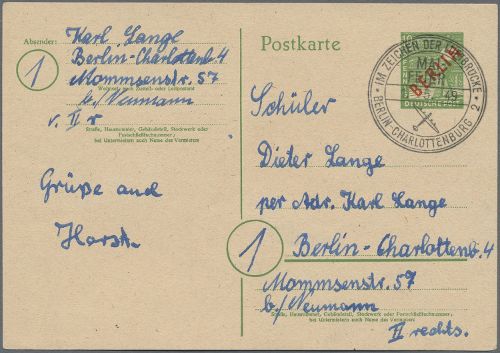 Absender:
Karl Lange
Berlin-Charlottenb. 4
Mommsenstr. 57
Wohnort, auch Zustell- oder Leitpostamt
b/Neumann
v. II r
Straße, Hausnummer, Gebäudeteil, Stockwerk oder
Postschließfachnummer;
bei Untermietern auch Name des Vermieters
1
Grüße and
Horst.
Postkarte
IM ZEICHEN DER LUFTBRÜCKE
MAI
49
BERLIN-CHARLOTTENBURG 2
BERLIN
DEUTSCHE POST
Schüler
Dieter Lange
per Adr. Karl Lange
1
Berlin-Charlottenb. 4
Mommsenstr. 57
b/Neumann
Straße, Hausnummer, Gebäudeteil, Stockwerk oder Postschließfachnummer;
bei Untermietern auch Name des Vermieters
II rechts.